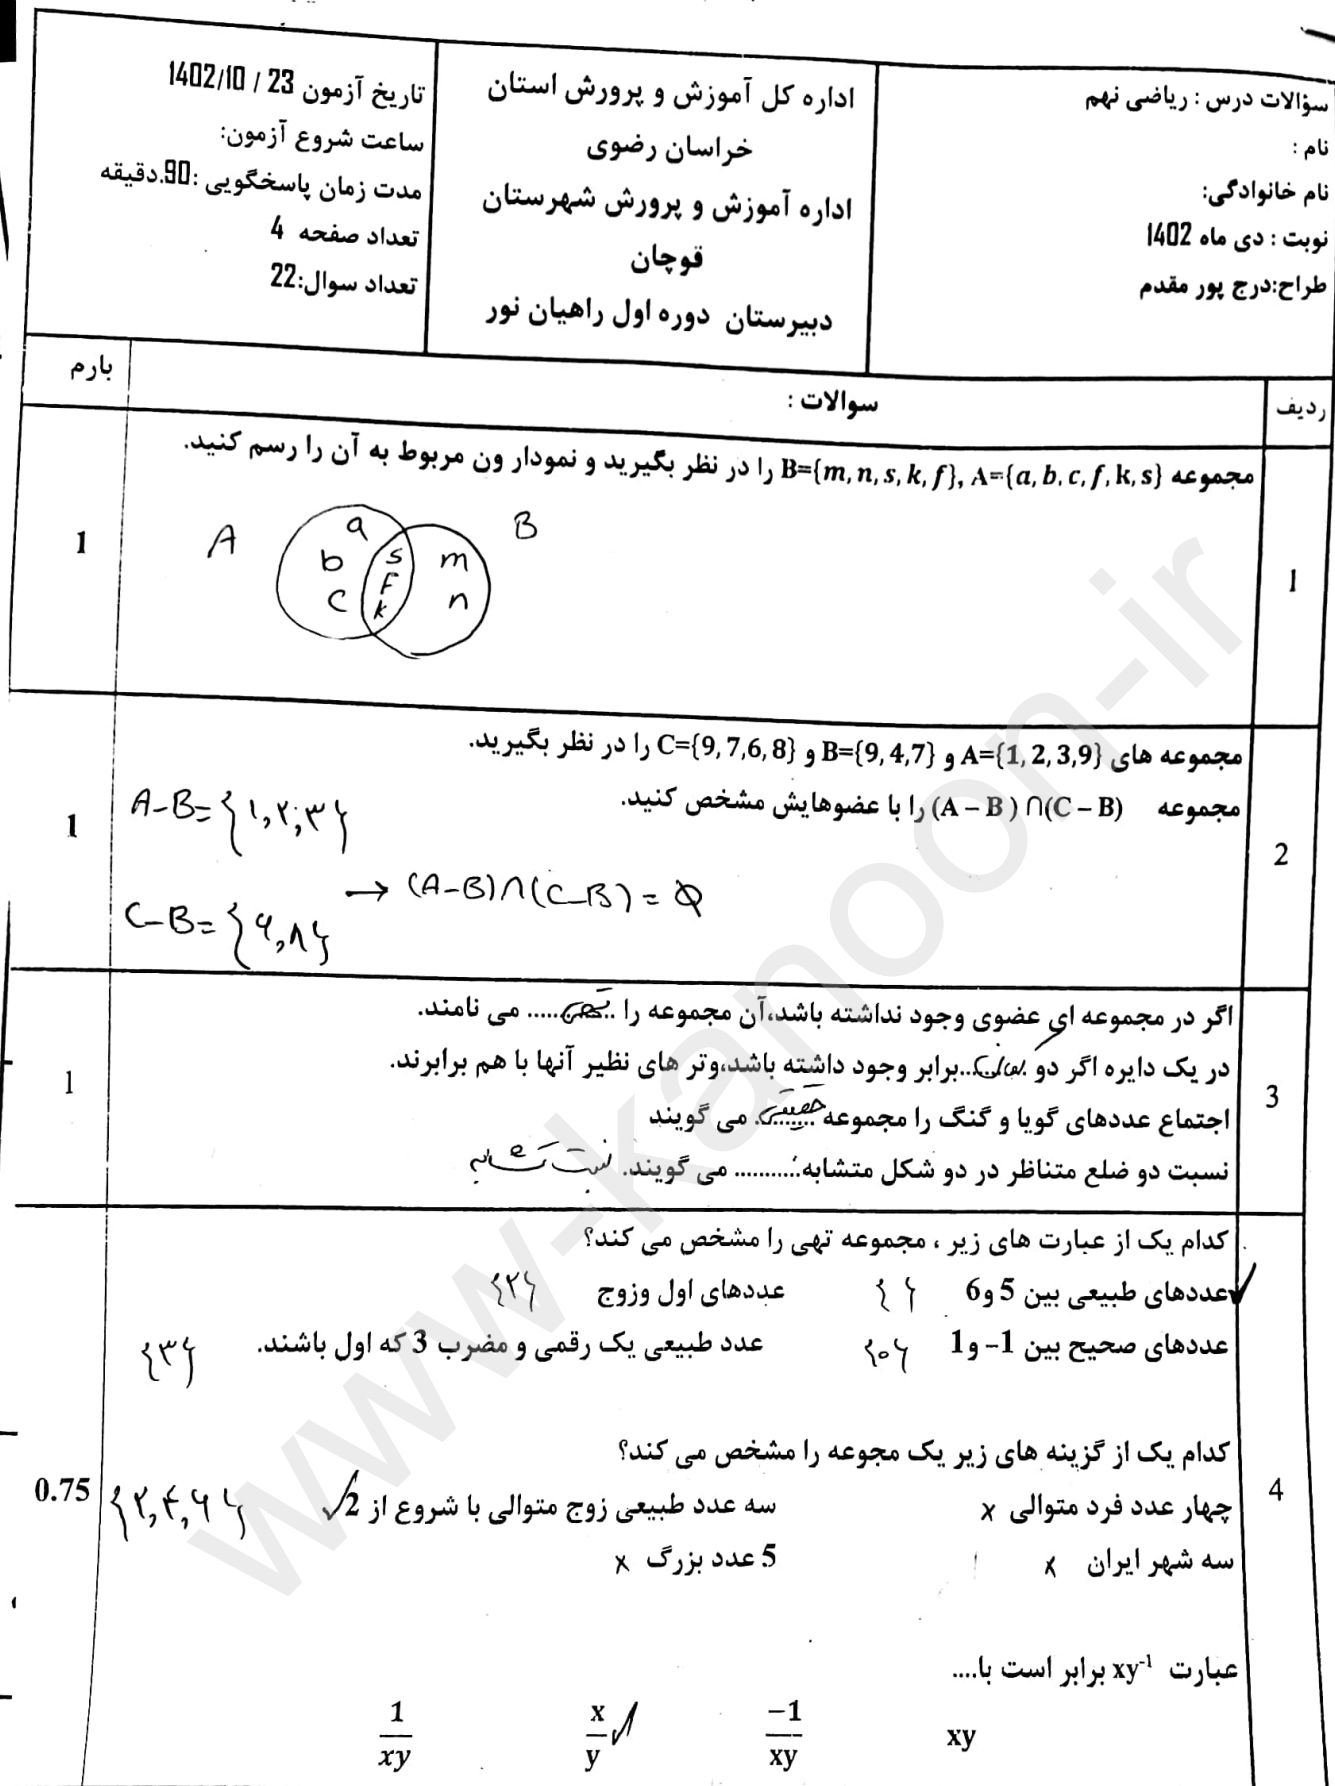 سؤالات درس : ریاضی نهم
نام :
نام خانوادگی:
نوبت : دی ماه 1402
طراح:درج پور مقدم
اداره کل آموزش و پرورش استان
خراسان رضوی
اداره آموزش و پرورش شهرستان
قوچان
دبیرستان دوره اول راهیان نور
تاریخ آزمون 23 / 1402/10
ساعت شروع آزمون:
مدت زمان پاسخگویی :90.دقیقه
تعداد صفحه 4
تعداد سوال:22
ردیف
سوالات :
بارم
1
مجموعه A={a, b, c, f, k, s} ,B={m, n, s, k, f} را در نظر بگیرید و نمودار ون مربوط به آن را رسم کنید.
1
A
B
a
b
c
s
F
k
m
n
2
مجموعه های A={1, 2, 3,9} و B={9, 4,7} و C={9, 7,6, 8} را در نظر بگیرید.
مجموعه (A – B ) ∩(C – B) را با عضوهایش مشخص کنید.
1
A-B={۱,۲,۳}
C-B={۶,۸}
→ (A-B)∩(C-B) = ∅
3
1
اگر در مجموعه ای عضوی وجود نداشته باشد،آن مجموعه را ..تهی...... می نامند.
در یک دایره اگر دو .کمان...برابر وجود داشته باشد،وتر های نظیر آنها با هم برابرند.
اجتماع عددهای گویا و گنگ را مجموعه حقیقی....... می گویند
نسبت دو ضلع متناظر در دو شکل متشابه:.......... می گویند. نسبت تشابه
4
0.75
کدام یک از عبارت های زیر ، مجموعه تهی را مشخص می کند؟
✓عددهای طبیعی بین 5 و6 { } عددهای اول وزوج {۲}
عددهای صحیح بین 1- و1 {۰} عدد طبیعی یک رقمی و مضرب 3 که اول باشند. {۳}
کدام یک از گزینه های زیر یک مجوعه را مشخص می کند؟
چهار عدد فرد متوالی × سه عدد طبیعی زوج متوالی با شروع از 2 ✓ {۲,۴,۶}
سه شهر ایران × 5 عدد بزرگ ×
عبارت xy⁻¹ برابر است با....
xy −1/xy x/y ✓ 1/xy
www-kanoon-ir